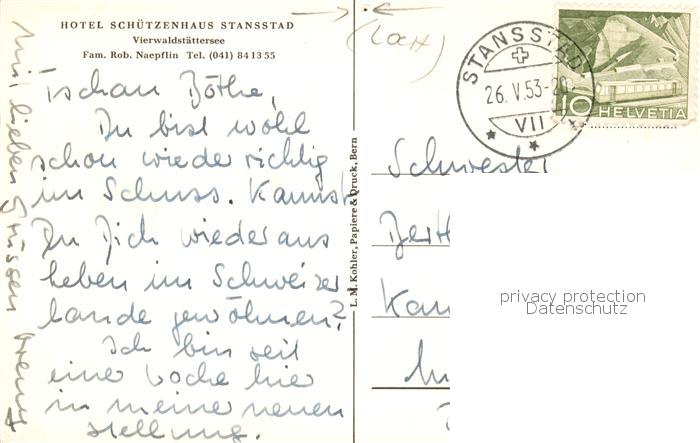 HOTEL SCHÜTZENHAUS STANSSTAD
Vierwaldstättersee
Fam. Rob. Naepflin Tel. (041) 84 13 55
(LOCH)
Tschau Böthe,
Du bist wohl
schon wieder richtig
im Schuss. Kannst
Du Dich wieder ans
leben im Schweizer
lande gewöhnen?
Ich bin seit
eine Woche hier
in meine neuen
Stellung.
Mit lieben Grüssen
L. M. Kohler, Papiere & Druck, Bern
STANSSTAD
26. V. 53-20
VII
10 HELVETIA
Schwester
privacy protection
Datenschutz